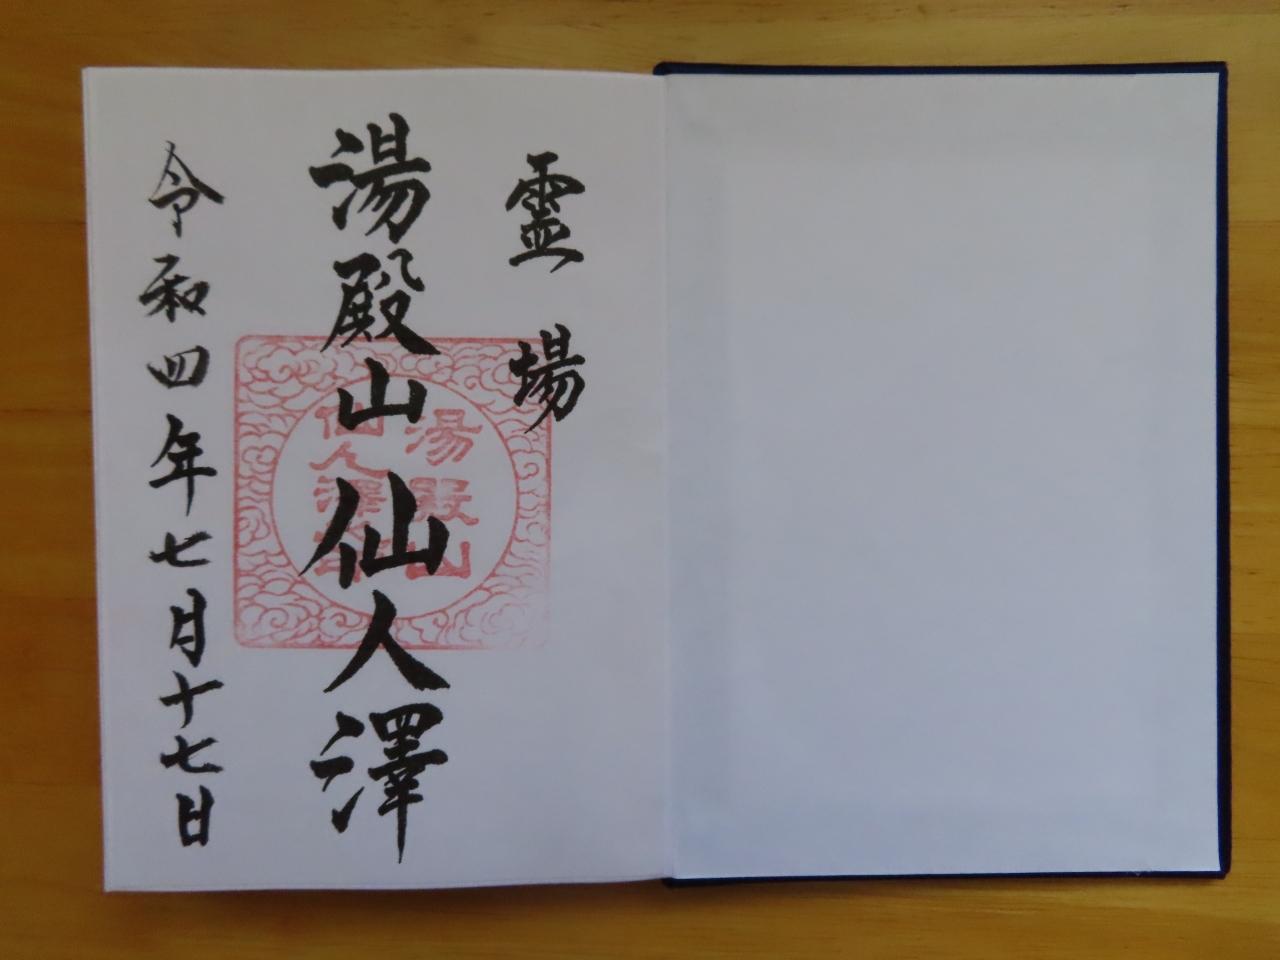 霊場
湯殿山仙人澤
令和四年七月十七日
湯殿山
仙人澤